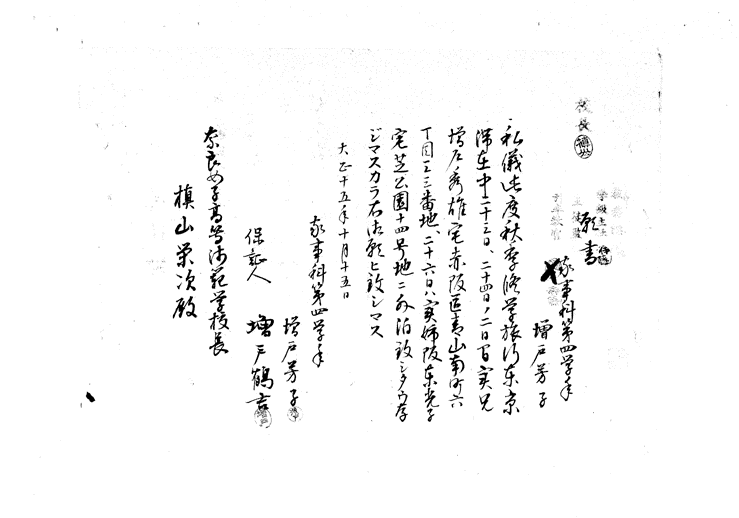 校長
願書
家事科第四学年
増戸芳子
私儀此度秋季修学旅行東京
滞在中二十三日、二十四日ノ二日間実兄
増戸秀雄宅赤阪区青山南町六
丁目一三三番地、二十六日ハ実姉阪東光子
宅芝公園十四号地ニ外泊致シタウ存
ジマスカラ右御願ヒ致シマス
大正十五年十月十五日
家事科第四学年
増戸芳子
保証人 増戸鶴吉
奈良女子高等師範学校長
槙山栄次殿